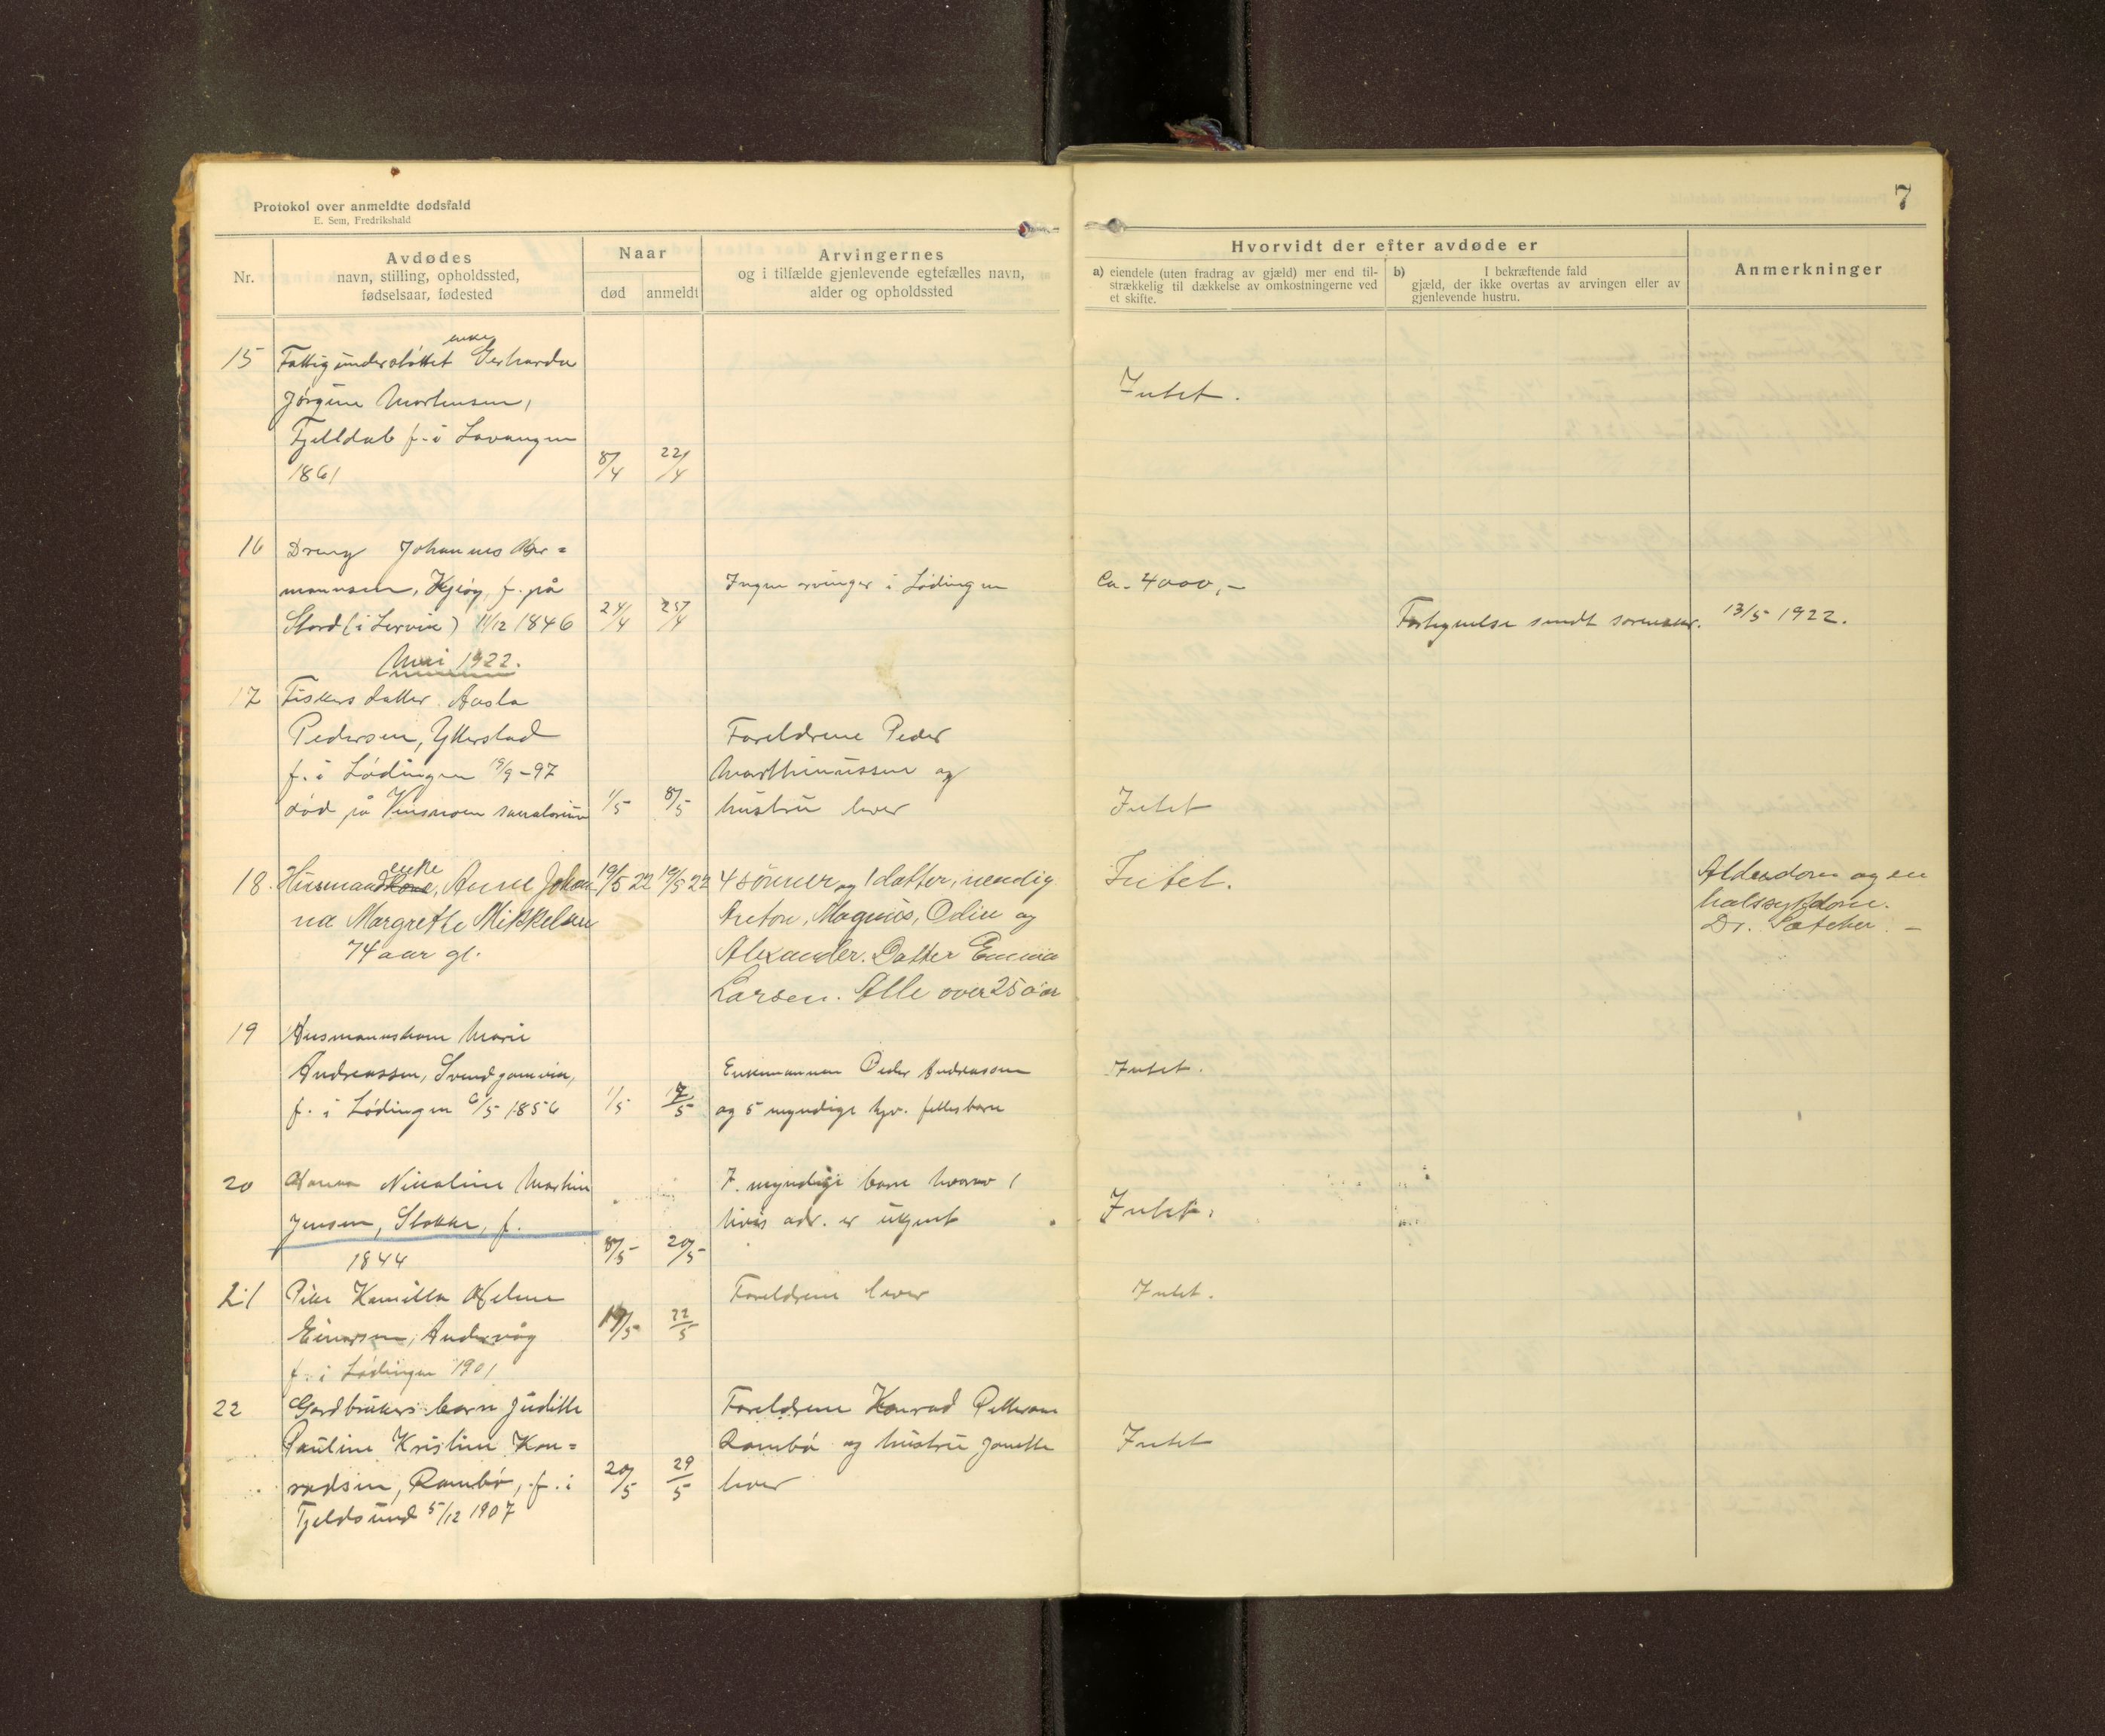 Protokol over anmeldte dødsfald
E. Sem, Fredrikshald
7
Nr.
Avdødes
navn, stilling, opholdssted,
fødselsaar, fødested
Naar
død
anmeldt
Arvingernes
og i tilfælde gjenlevende egtefælles navn,
alder og opholdssted
Hvorvidt der efter avdøde er
a) eiendele (uten fradrag av gjæld) mer end til-
strækkelig til dækkelse av omkostningerne ved
et skifte.
b) I bekræftende fald
gjæld, der ikke overtas av arvingen eller av
gjenlevende hustru.
Anmerkninger
enke
15 Fattigunderstøttet Gerharda
Jørgine Martensen,
Fjelldal f. i Lavangen
1861 8/4 22/4
Intet.
16 Dreng Johannes Her=
mannsen, Kjeøy, f. på
Stord (i Lervik) 11/12 1846 24/4 25/4
Ingen arvinger i Lødingen
Ca. 4000,-
Fortegnelse sendt sorenskr. 13/5 1922.
Mai 1922.
17 Fiskers datter Aasla
Pedersen, Ytterstad
f. i Lødingen 19/9-97
død på Vensmoen sanatorium 1/5 8/5
Foreldrene Peder
Marthinussen og
hustru lever
Intet
enke
18. Husmandkone, Anne Johan 19/5 22 19/5 22
na Margrethe Mikkelsen
74 aar gl.
4 sønner og 1 datter, nemlig
Anton, Magnus, Odin og
Alexander. Datter Emma
Larsen. Alle over 25 aar
Intet.
Alderdom og en
halssykdom.
Dr.
19 Husmannskone Marie
Andreassen, Svendgamvik,
f. i Lødingen 6/5 1856 1/5 7/5
Enkemannen Peder Andreassen
og 5 myndige hjv. fellesbarn
Intet.
20 Hanna Nicoline Martin
Jensen, Stokke, f.
1844 8/5 20/5
7 myndige barn hvorav 1
hvis adr. er ukjent
Intet.
21 Pike Kamilla Helene
Einarsen, Andervåg 19/5 22/5
f. i Lødingen 1901
Foreldrene lever
Intet.
22 Gardbrukers barn Judithe
Pauline Kristine Kon=
radsen, Rambø, f. i 20/5 29/5
Tjeldsund 5/12 1907
Foreldrene Konrad Pettersen
Rambø og hustru Janette
lever
Intet